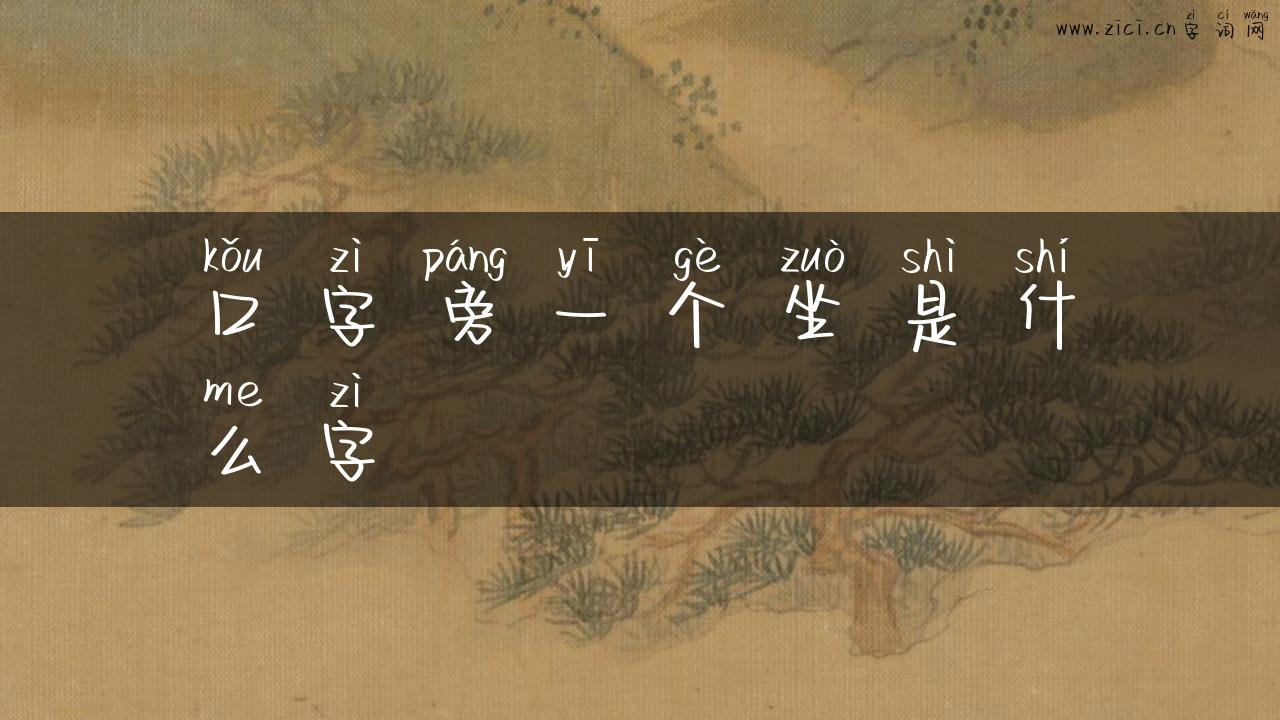 www.zici.cn 字词网
zì cí wǎng
kǒu zì páng yī gè zuò shì shí
口字旁一个坐是什
me zì
么字